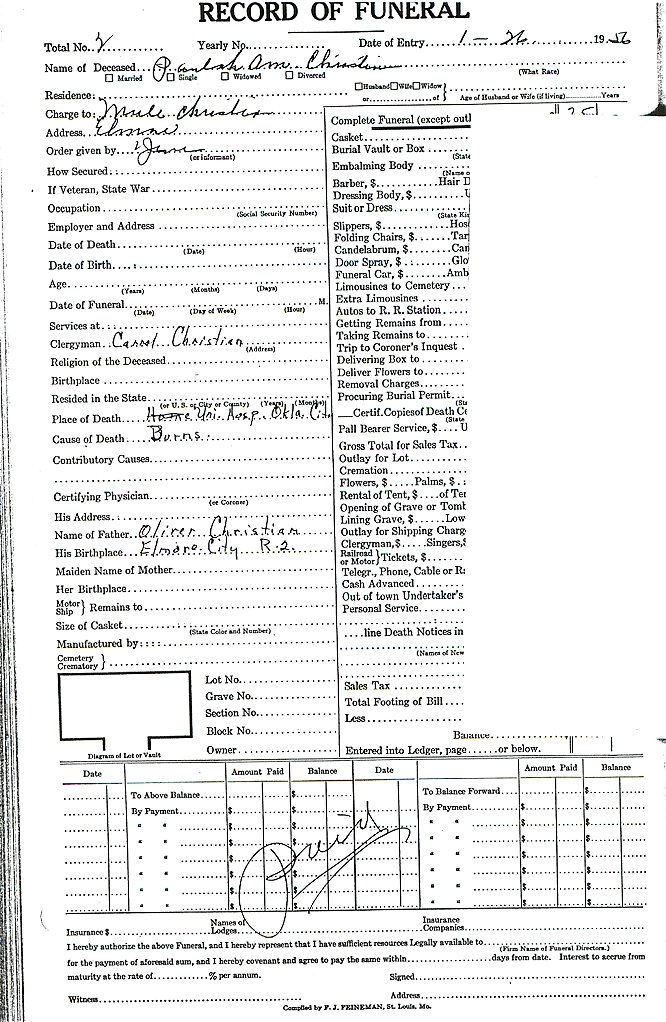 RECORD OF FUNERAL
Total No. 2 Yearly No. Date of Entry 1 - 26 1956
Name of Deceased Ann Christian
Married Single Widowed Divorced (What Race)
Residence: Husband Wife Widow
or of Age of Husband or Wife (if living) Years
Charge to: Christian
Address
Order given by
(or informant)
How Secured:
If Veteran, State War
Occupation
(Social Security Number)
Employer and Address
Date of Death
(Date) (Hour)
Date of Birth
Age
(Years) (Months) (Days)
Date of Funeral M.
(Date) (Day of Week) (Hour)
Services at:
Clergyman Carrol Christian
(Address)
Religion of the Deceased
Birthplace
Resided in the State
(or U. S. or City or County) (Years) (Months)
Place of Death Home Uni. Hosp. Okla City
Cause of Death Burns
Contributory Causes
Certifying Physician
(or Coroner)
His Address
Name of Father Oliver Christian
His Birthplace Elmore City R-2
Maiden Name of Mother
Her Birthplace
Motor Ship } Remains to
Size of Casket
(State Color and Number)
Manufactured by:
Cemetery
Crematory }
Diagram of Lot or Vault
Lot No.
Grave No.
Section No.
Block No.
Owner
Complete Funeral (except outl
Casket
Burial Vault or Box
(State
Embalming Body
(Name o
Barber, $ Hair D
Dressing Body, $
Suit or Dress
(State Ki
Slippers, $ Hos
Folding Chairs, $ Tar
Candelabrum, $ Can
Door Spray, $ Glo
Funeral Car, $ Amb
Limousines to Cemetery
Extra Limousines
Autos to R. R. Station
Getting Remains from
Taking Remains to
Trip to Coroner's Inquest
Delivering Box to
Deliver Flowers to
Removal Charges
Procuring Burial Permit
Certif. Copies of Death Ce
(State
Pall Bearer Service, $ U
Gross Total for Sales Tax
Outlay for Lot
Cremation
Flowers, $ Palms, $
Rental of Tent, $ of Te
Opening of Grave or Tomb
Lining Grave, $ Low
Outlay for Shipping Charg
Clergyman, $ Singers, $
Railroad or Motor } Tickets, $
Telegr., Phone, Cable or Ra
Cash Advanced
Out of town Undertaker's
Personal Service
line Death Notices in
(Names of New
Sales Tax
Total Footing of Bill
Less
Balance
Entered into Ledger, page or below.
Date Amount Paid Balance Date Amount Paid Balance
To Above Balance $ To Balance Forward $
By Payment $ $ By Payment $ $
" " $ $ " " $ $
" " $ $ " " $ $
" " $ $ " " $ $
" " $ $ " " $ $
" " $ $ " " $ $
Paid
Insurance $ Names of Lodges Insurance Companies
I hereby authorize the above Funeral, and I hereby represent that I have sufficient resources Legally available to
(Firm Name of Funeral Directors.)
for the payment of aforesaid sum, and I hereby covenant and agree to pay the same within days from date. Interest to accrue from
maturity at the rate of % per annum. Signed
Witness Address
Compiled by F. J. FEINEMAN, St. Louis, Mo.